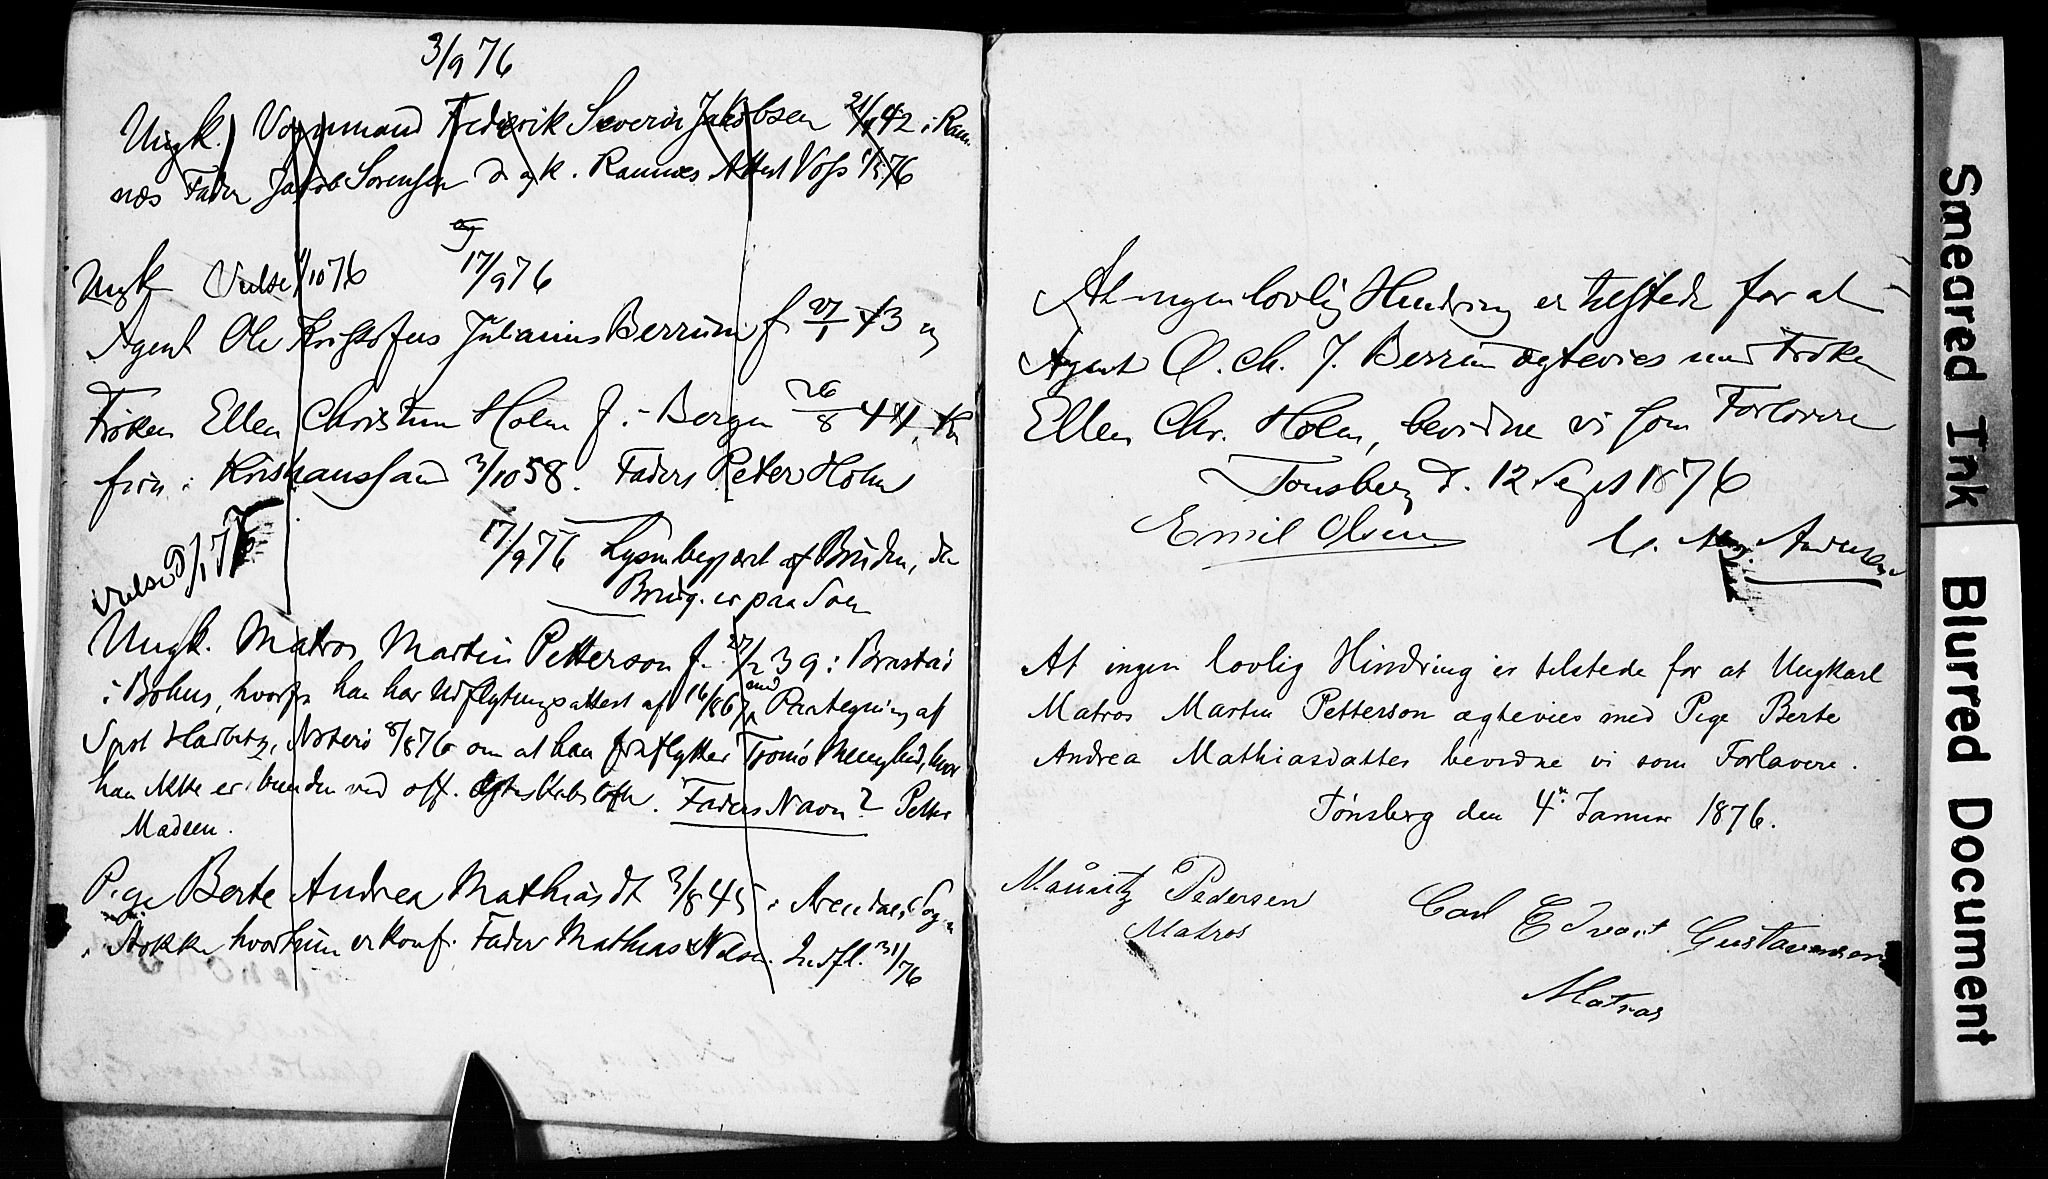 3/9 76
Ungk. Vognmand Frederik Severin Jakobsen 21/9 42 i Ram-
næs Fader Jakob Sørensen Ramnæs Attest Voss 76
17/9 76
Ungk Vielse 1/10 76
Agent Ole Kristofus Julianus Berrum f. 27/1 43 og
Frøken Ellen Christine Holm f. i Bergen 26/8 44,
firm i Kristianssand 3/10 58. Faders Peter Holm
Vielse 5/1 77
17/9 76 Lysn begjært af Bruden, da
Brudg. er paa Søen
Ungk. Matros Martin Petterson f. 27/2 39 i Brastad
i Bohus, hvorfra han har Udflytningsattest af 16/8 67 med Paategning af
Sprst Harbitz, Nøterø 8/8 76 om at han fraflytter Tromø Menighed, hvor
han ikke er bunden ved off. Ægteskabsløfte. Faders Navn? Petter
Madsen.
Pige Berte Andrea Mathiasdt 3/8 45 i Arendal Sogn
i Stokke hvor hun er konf. Fader Mathias Nilsen. Indfl. 31/1 76
At ingen lovlig Hindring er tilstede for at
Agent O. Ch. J. Berrum ægtevies med Frøken
Ellen Chr. Holm, bevidne vi som Forlovere
Tønsberg d. 12 Sept 1876
Emil Olsen Andersen
At ingen lovlig Hindring er tilstede for at Ungkarl
Matros Martin Petterson ægtevies med Pige Berte
Andrea Mathiasdatter bevidne vi som Forlovere.
Tønsberg den 4de Januar 1876.
Mauritz Pedersen
Carl Edvart Gustavensen
Matros
Matros
Smeared Ink
Blurred Document